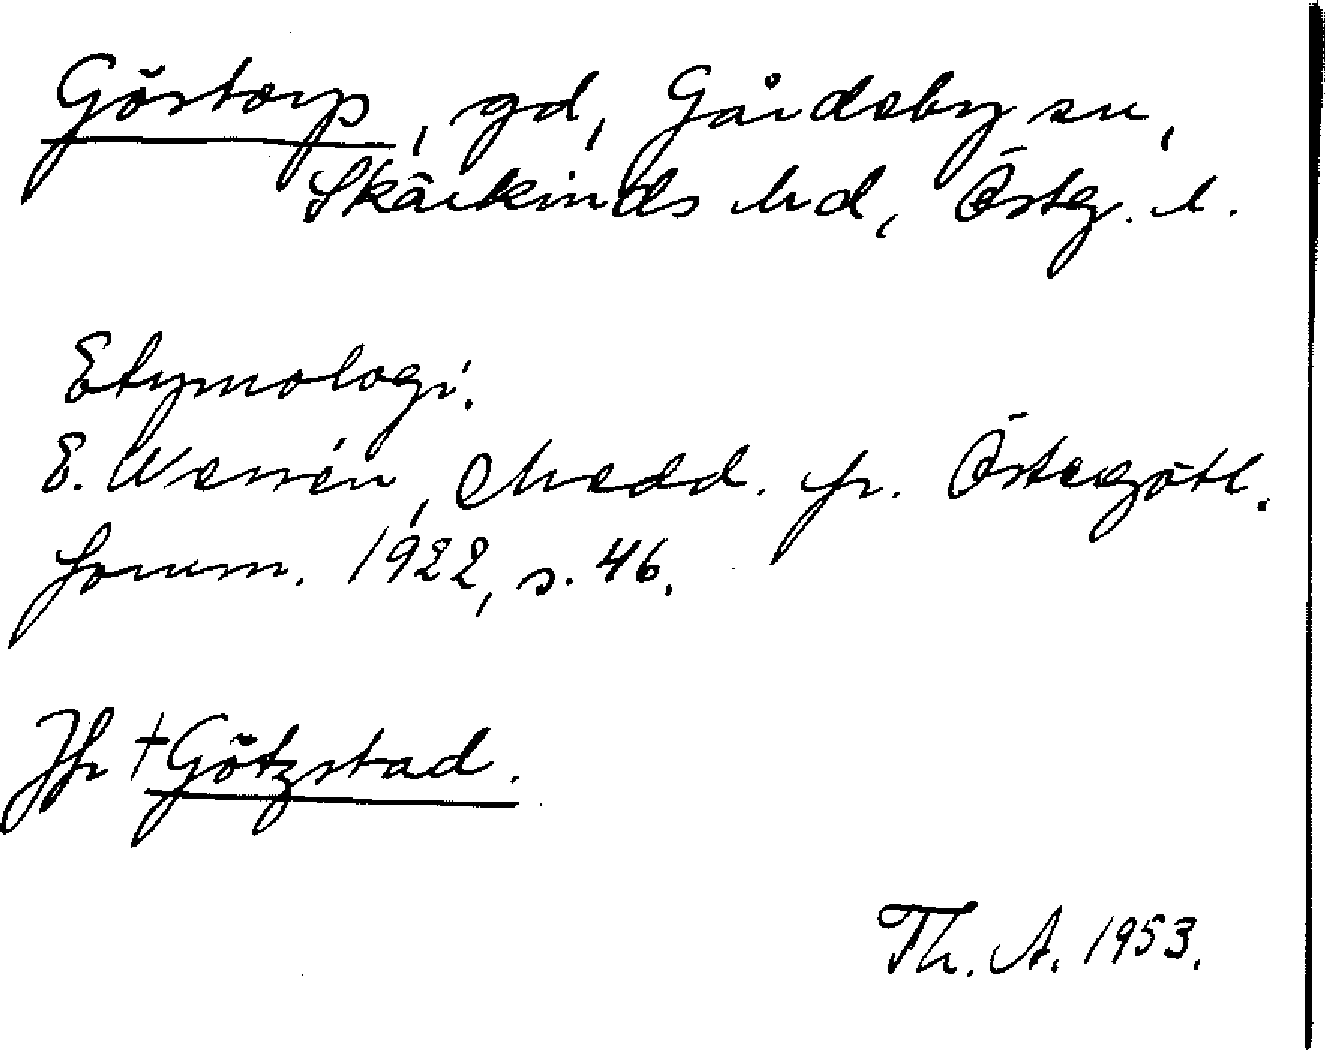 Göstorp, gd, Gårdeby sn,
Skärkinds hd, Östg. l.
Etymologi.
E. Wessén, Medd. fr. Östergötl.
fornm. 1922, s. 46.
Jfr †Götzstad.
Th. A. 1953.